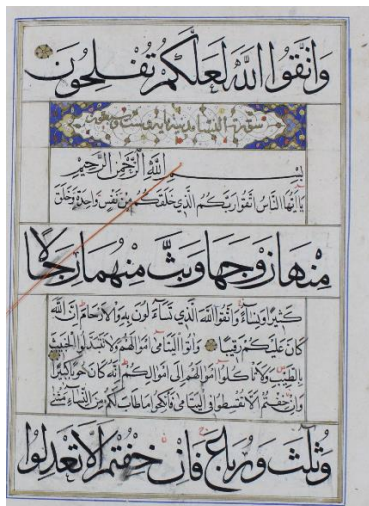 وَاتَّقُوا اللَّهَ لَعَلَّكُمْ تُفْلِحُونَ
سورة النساء مائة و سبعون
بِسْمِ اللَّهِ الرَّحْمَٰنِ الرَّحِيمِ
يَا أَيُّهَا النَّاسُ اتَّقُوا رَبَّكُمُ الَّذِي خَلَقَكُمْ مِنْ نَفْسٍ وَاحِدَةٍ وَخَلَقَ
مِنْهَا زَوْجَهَا وَبَثَّ مِنْهُمَا رِجَالًا
كَثِيرًا وَنِسَاءً وَاتَّقُوا اللَّهَ الَّذِي تَسَاءَلُونَ بِهِ وَالْأَرْحَامَ إِنَّ اللَّهَ
كَانَ عَلَيْكُمْ رَقِيبًا وَآتُوا الْيَتَامَى أَمْوَالَهُمْ وَلَا تَتَبَدَّلُوا الْخَبِيثَ
بِالطَّيِّبِ وَلَا تَأْكُلُوا أَمْوَالَهُمْ إِلَى أَمْوَالِكُمْ إِنَّهُ كَانَ حُوبًا كَبِيرًا
وَإِنْ خِفْتُمْ أَلَّا تُقْسِطُوا فِي الْيَتَامَى فَانْكِحُوا مَا طَابَ لَكُمْ مِنَ النِّسَاءِ مَثْنَى
وَثُلَاثَ وَرُبَاعَ فَإِنْ خِفْتُمْ أَلَّا تَعْدِلُوا